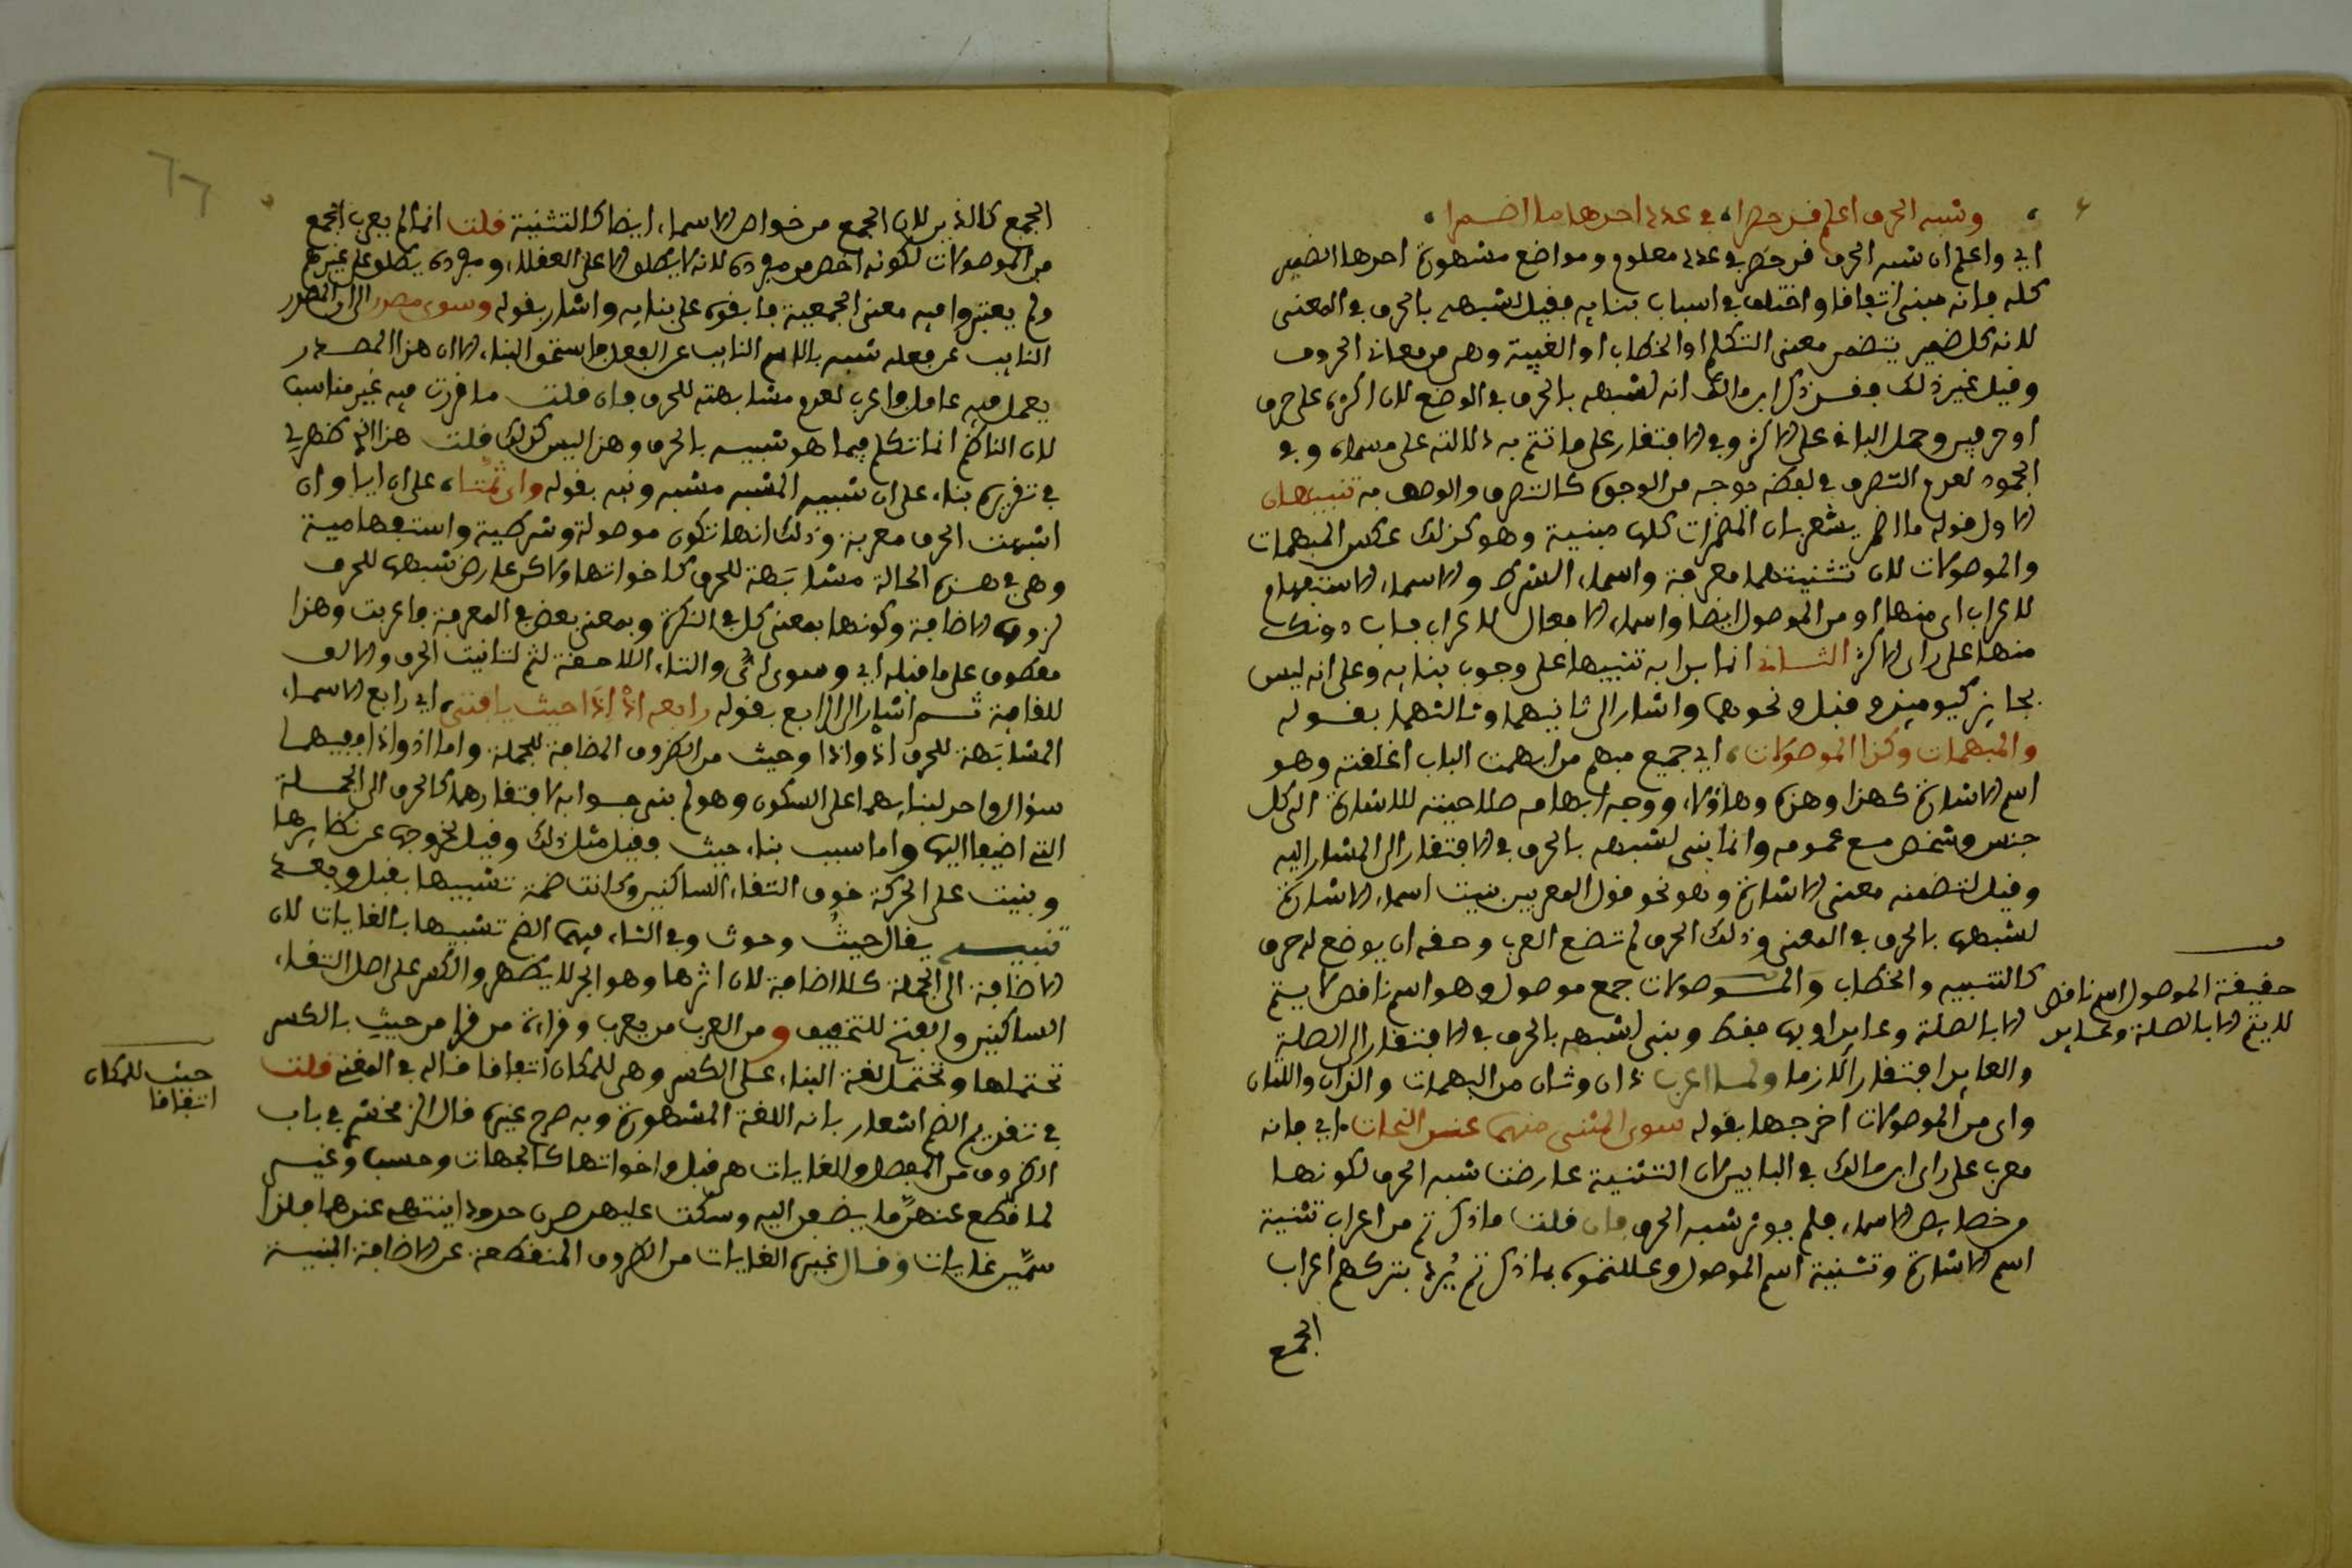 وشبه الحرف اعلم قد حصرا، في عدد احدها ما اضمرا،
اي واعلم ان شبه الحرف قد حصر في عدد معلوم ومواضع مشهورة احدها الضمير
كله فانه مبني اتفاقا واختلف في اسباب بنايه فقيل لشبهه بالحرف في المعنى
لانه كل ضمير يتضمن معنى التكلم او الخطاب او الغيبة وهي من معاني الحروف
وقيل غير ذلك فقد ذكر ابن مالك انه لشبهه بالحرف في الوضع لان اكثره على حرف
او حرفين وحمل الباقي على الاكثر وفي الافتقار على ما تتم به دلالته على مسماه وفي
الجمود لعدم التصرف في لفظه بوجه من الوجوه كالتصرف والوصف به تنبيهان
الاول قوله ما اضمر يشعر بان المضمرات كلها مبنية وهو كذلك عكس المبهمات
والموصولات لان تثنيتهما معربة واسماء الشرط والاسماء الاستفهام
لاعراب اي منها او من الموصول ايضا واسماء الافعال لاعراب باب دونك
منها على راي الاكثر الثاني انما بدا به تنبيها على وجوب بنايه وعلى انه ليس
بجايز كيومئذ وقبل ونحوهما واشار الى ثانيهما وثالثهما بقوله
والمبهمات وكذا الموصولات، اي جميع مبهم من ابهمت الباب اغلقته وهو
اسم الاشارة كهذا وهذه وهاؤلاء ووجه ابهامه صلاحيته للاشارة الى كل
جنس وشخص مع عمومه وانما بني لشبهه بالحرف في الافتقار الى المشار اليه
وقيل لتضمنه معنى الاشارة وهو نحو قول المعربين بنيت اسماء الاشارة
لشبهها بالحرف في المعنى وذلك الحرف لم تضع العرب وحقه ان يوضع له حرف
كالتنبيه والخطاب والموصولات جمع موصول وهو اسم ناقص لا يتم
الا بالصلة وعايد او بها فقط وبني لشبهه بالحرف في الافتقار الى الصلة
والعايد افتقارا لازما ولما اعرب ذان وتان من المبهمات والذان واللتان
واي من الموصولات اخرجها بقوله سوى المثنى منهما عند النحات، اي فانه
معرب على راي ابن مالك في البابين لان التثنية عارضت شبه الحرف لكونها
من خصايص الاسماء فلم يوثر شبه الحرف فان قلت ما ذكرتم من اعراب تثنية
اسم الاشارة وتثنية اسم الموصول وعللتموه بما ذكرتم يُرد بتركهم اعراب
الجمع
حقيقة الموصول اسم ناقص
لا يتم الا بالصلة وعايد
الجمع كالذين لان الجمع من خواص الاسماء ايضا كالتثنية قلت انما لم يعرب الجمع
من الموصولات لكونه اخص من مفرده لانه لا يطلق الا على العقلاء ومفرده يطلق على غيرهم
ولم يعتبروا فيه معنى الجمعية فابقوه على بنايه واشار بقوله وسوى مصدر الى ان المصدر
النايب عن فعله شبه بالاسم النايب عن الفعل فاستحق البناء الا ان هذا المصدر
يعمل فيه عامل فاعرب لعدم مشابهته للحرف فان قلت ما قررت فيه غير مناسب
لان الناظم انما تكلم فيما هو شبيه بالحرف وهذا ليس كذلك قلت هذا الذي ظهر لي
في تقريره بناء على ان شبيه المشبه مشبه ونبه بقوله واي ثمتاء على ان ايا وان
اشبهت الحرف معربة وذلك انها تكون موصولة وشرطية واستفهامية
وهي في هذه الحالة مشابهة للحرف كاخواتها ولاكن عارض شبهها للحرف
لزومها الاضافة وكونها بمعنى كل في النكرة وبمعنى بعض في المعرفة فاعربت وهذا
معطوف على ما قبله اي وسوى اي والتاء اللاحقة لثم لتانيث الحرف والالف
للقافية ثم اشار الى الرابع بقوله رابعه اذ اذا حيث يا فتى، اي رابع الاسماء
المشابهة للحرف اذ واذا وحيث من الظروف المضافة للجملة واما اذ واذا ففيهما
سؤال واحد لبنايهما على السكون وهو لم بني جوابه لافتقارهما كالحرف الى الجملة
التي اضيفا اليها واما سبب بناء حيث فقيل مثل ذلك وقيل لخروجها عن نظايرها
وبنيت على الحركة خوف التقاء الساكنين وكانت ضمة تشبيها بقبل وبعد
تنبيه يقال حيث وحوث وفي الثاء فيهما الضم تشبيها بالغايات لان
الاضافة الى الجملة كلا اضافة لان اثرها وهو الجر لا يظهر والكسر على اصل التقاء
الساكنين والفتح للتخفيف ومن العرب من يعرب وقراءة من قرا من حيث بالكسر
تحتملها وتحتمل لغة البناء على الكسر وهي للمكان اتفاقا قاله في المغني قلت
في تقديم الضم اشعار بانه اللغة المشهورة وبه صرح غيره قال الزمخشري في باب
الظروف من المفصل والغايات هي قبل واخواتها كالجهات وحسب وغير
لما قطع عنهن ما يضفن اليه وسكت عليهن صرن حدودا ينتهى عندها فلذا
سمين غايات وقال غيره الغايات من الظروف المنقطعة عن الاضافة المبنية
حيث للمكان
اتفاقا